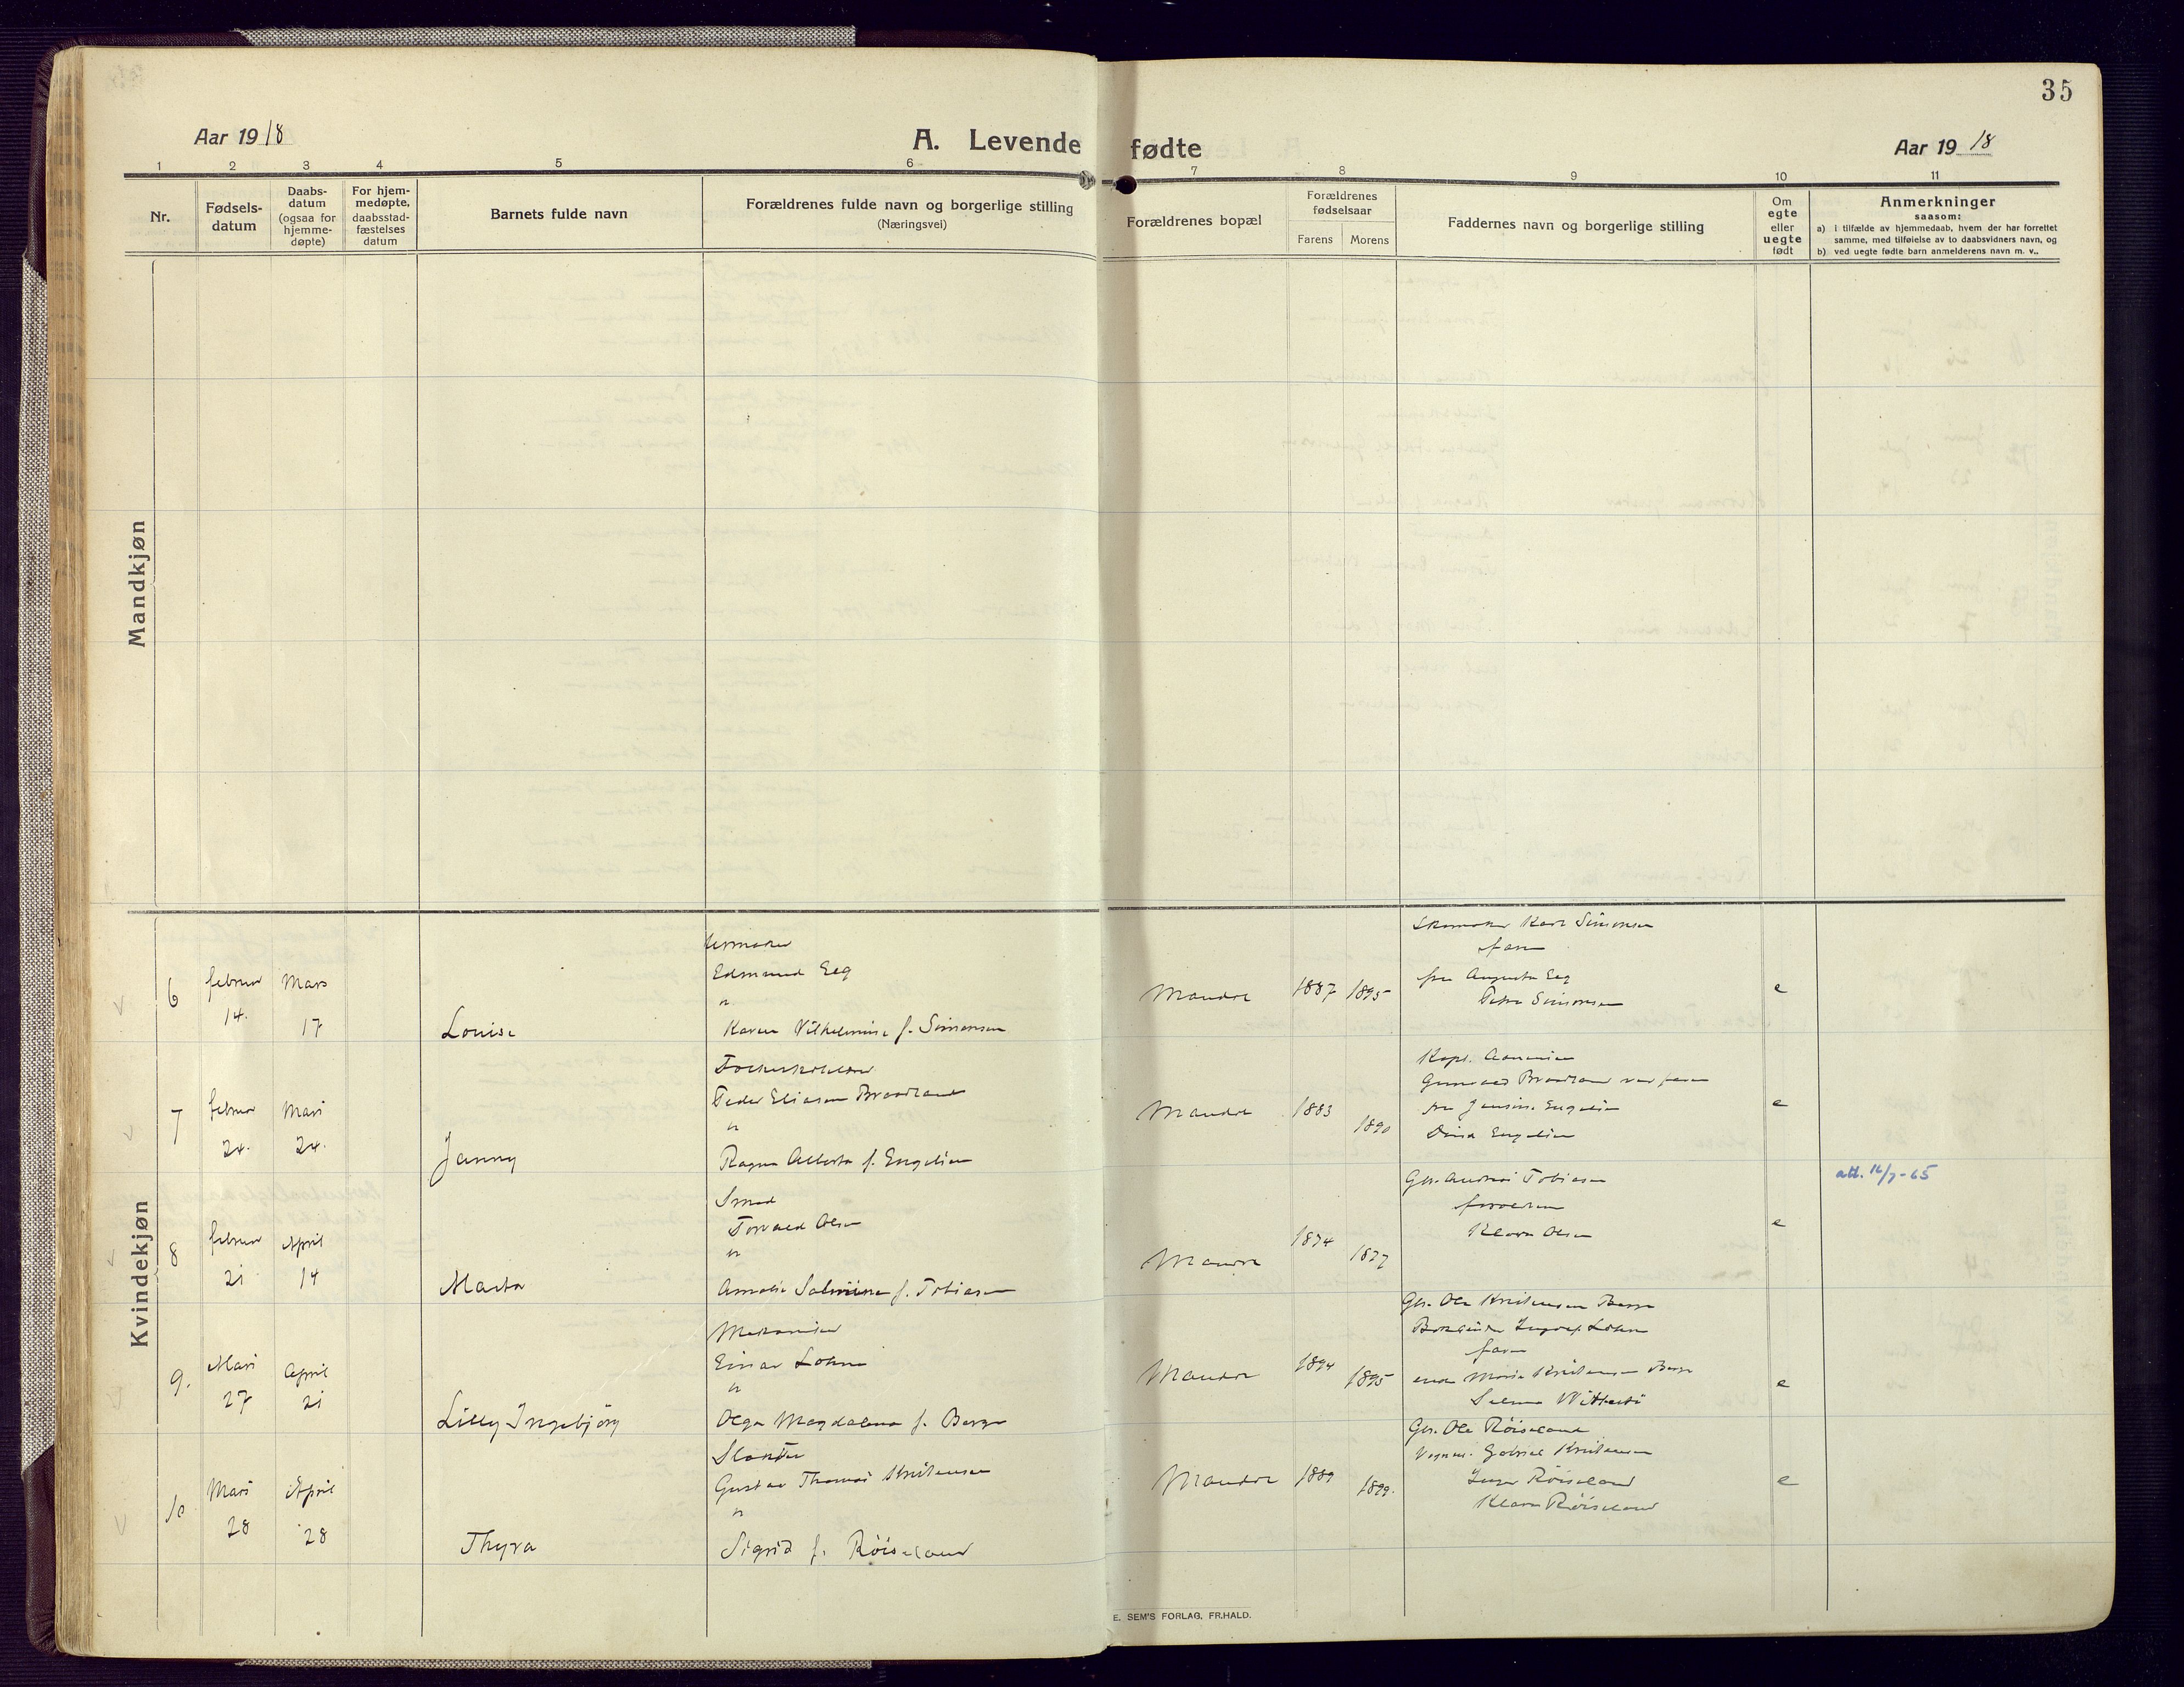 35
Aar 1918
A. Levende fødte
Aar 1918
1 2 3 4 5 6 7 8 9 10 11
Nr.
Fødsels-
datum
Daabs-
datum
(ogsaa for
hjemme-
døpte)
For hjem-
medøpte,
daabsstad-
fæstelses
datum
Barnets fulde navn
Forældrenes fulde navn og borgerlige stilling
(Næringsvei)
Forældrenes bopæl
Forældrenes
fødselsaar
Farens Morens
Faddernes navn og borgerlige stilling
Om
egte
eller
uegte
født
Anmerkninger
saasom:
a) i tilfælde av hjemmedaab, hvem der har forrettet
samme, med tilføielse av to daabsvidners navn, og
b) ved uegte fødte barn anmelderens navn m. v..
Mandkjøn
Kvindekjøn
6
februar
14.
Mars
17
Louise
Urmaker
Edmund Eeg
Karen Vilhelmine f. Simonsen
Mandal
1887 1895
Skomaker Karl Simonsen
faren
fru Augusta Eeg
Petra Simonsen
e
7
februar
24.
Mars
24.
Janny
Peder Eliasen Braadland
Ragna Alberta f. Engelien
Mandal
1883
1890
Gunvald Braadland var faren
fru Jensine Engelien
Dina Engelien
e
8
februar
21
April
14
Marta
Smed
Torvald Olsen
Amalie Salmine f. Tobiasen
Mandal
1874
1877
Gbr. Andreas Tobiasen
forældrene
Klara Olsen
e
att. 16/7-65
9.
Mars
27
April
21
Lilly Ingebjörg
Mekaniker
Einar Lohne
Olga Magdalena f. Berge
Mandal
1894
1895
Gbr. Ole Kristensen Berge
Ingolf Lohne
faren
Marie Kristensen Berge
Selma
e
10
Mars
28
April
28
Thyra
Slakter
Gustav Thomas Kristensen
Sigrid f. Röiseland
Mandal
1889
1899.
Gbr. Ole Röiseland
Gabriel Kristensen
Inger Röiseland
Klara Röiseland
e
E. SEM'S FORLAG, FR.HALD.